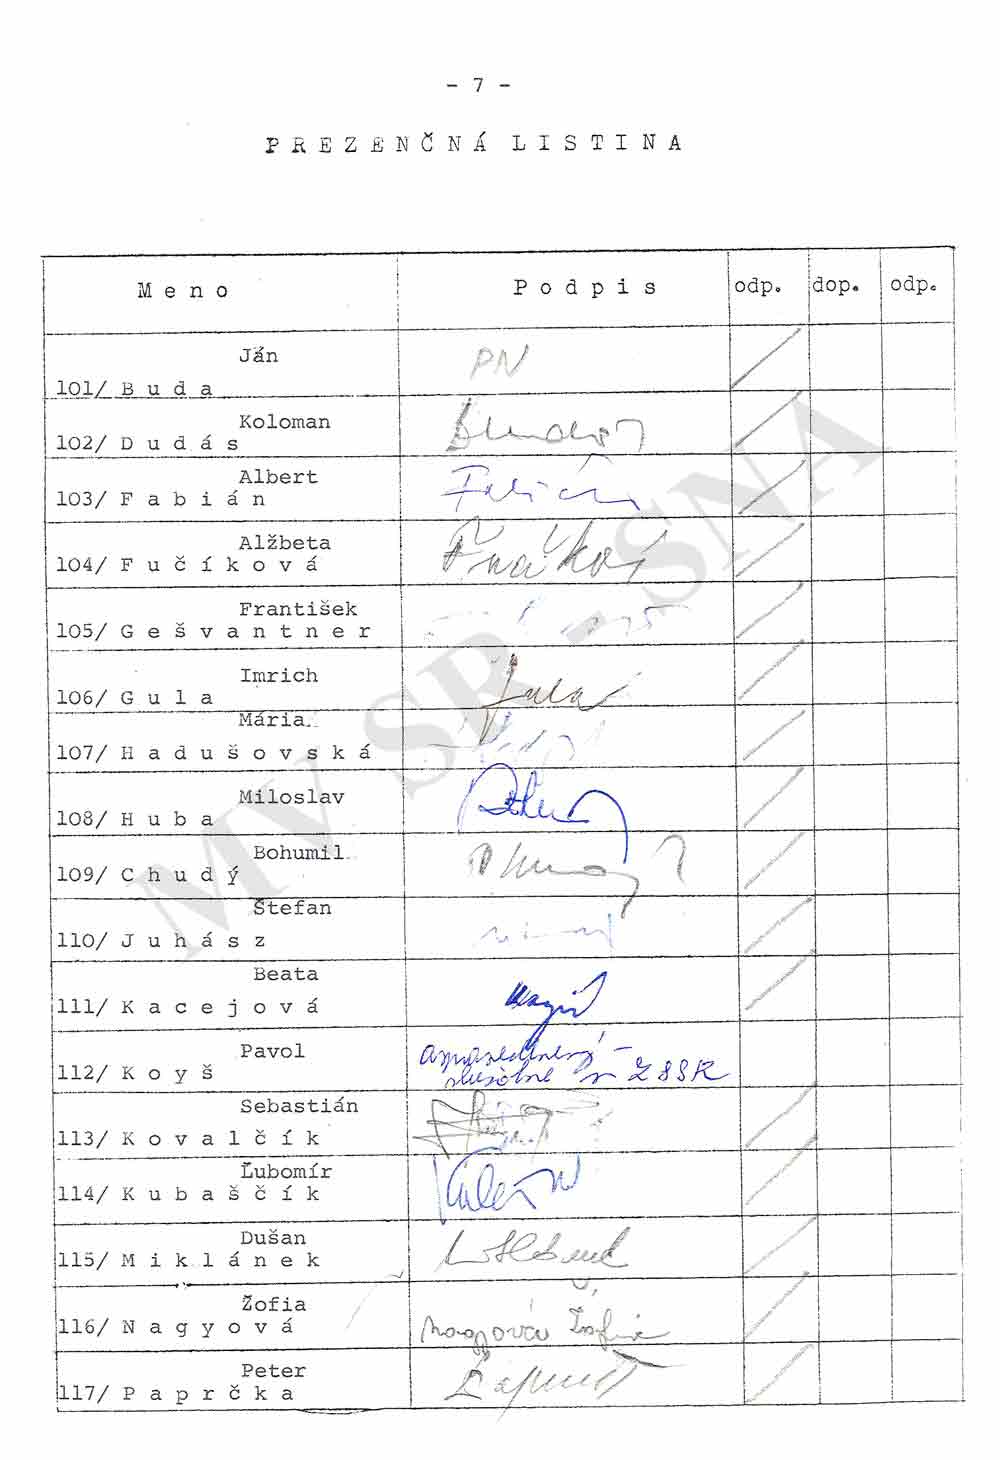 - 7 -
PREZENČNÁ LISTINA
Meno Podpis odp. dop. odp.
Ján
101/ Buda PN
Koloman
102/ Dudás
Albert
103/ Fabián
Alžbeta
104/ Fučíková
František
105/ Gešvantner
Imrich
106/ Gula Gula
Mária
107/ Hadušovská
Miloslav
108/ Huba
Bohumil
109/ Chudý
Štefan
110/ Juhász
Beata
111/ Kacejová
Pavol
112/ Koyš ospravedlnený -
služobne v ZSSR
Sebastián
113/ Kovalčík
Ľubomír
114/ Kubaščík
Dušan
115/ Miklánek
Žofia
116/ Nagyová Nagyová Žofia
Peter
117/ Paprčka
MV SR - SNA